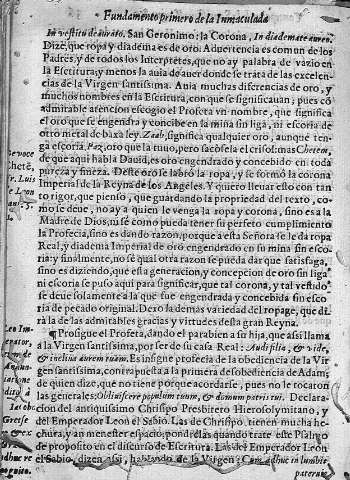 Fundamento primero de la Inmaculada
In vestito deaurato. San Geronimo: la Corona, In diademate aureo.
Dize, que ropa y diadema es de oro: Aduertencia es comun de los
Padres, y de todos los Interpretes, que no ay palabra de vazio en
la Escritura, y menos la auia de auer donde se trata de las excelen-
cias de la Virgen santissima. Auia muchas diferencias de oro, y
muchos nombres en la Escritura, con que se significauan; pues cõ
admirable atencion escogio el Profeta vn nombre, que significa
el oro que se engendra y concibe en la mina sin liga, ni escoria de
otro metal de baxa ley. Zaab, significa qualquier oro, aunque ten-
ga escoria, Paz, oro que la tuuo, pero sacósela el crisol: mas Chetem,
de que aqui habla Dauid, es oro engendrado y concebido en toda
pureza y fineza. Deste oro se labrò la ropa, y se formó la corona
Imperial de la Reyna de los Angeles. Y quiero lleuar esto con tan
to rigor, que pienso, que guardando la propiedad del texto, co-
mo se deue, no ay a quien le venga la ropa y corona, sino es a la
Madre de Dios, ni sé como pueda tener su perfeto cumplimiento
la Profecia, sino es dando razon, porque a esta Señora se le da ropa
Real, y diadema Imperial de oro engendrado en su mina sin esco-
ria: y finalmente, no sè qual otra razon se pueda dar que satisfaga,
sino es diziendo, que essa generacion, y concepcion de oro sin liga
ni escoria se puso aqui para significar, que tal corona, y tal vestido
se deue solamente a la que fue engendrada y concebida sin esco-
ria de pecado original. Dexo la demas variedad del ropage, que di-
rá la de las admirables gracias y virtudes desta gran Reyna.
¶ Prosigue el Profeta, dando el parabien a su hija, que assi llama
a la Virgen santissima, por ser de su casa Real: Audi filia, & vide,
& inclina aurem tuam. Es insigne profecia de la obediencia de la Vir
gen santissima, contrapuesta a la primera desobediencia de Adam;
de quien dize, què no tiene porque acordarse, pues no le tocaron
las generales: Obliuiscere populum tuum, & domum patris tui. Declara-
cion del antiquissimo Chrisipo Presbitero Hierosolymitano, y
del Emperador Leon el Sabio. Las de Chrisipo tienen mucha he-
chura, y an menester espacio: pondrelas quando trate este Psalmo
de proposito en el discurso de Escritura. Las del Emperador Leon
el Sabio, dizen assi, hablando de la Virgen: Cum adhuc in lumbis
paternis
De voce
Chetẽ,
r. Luis
e Leon
Leo Im-
perator
Iacobo
Gretse